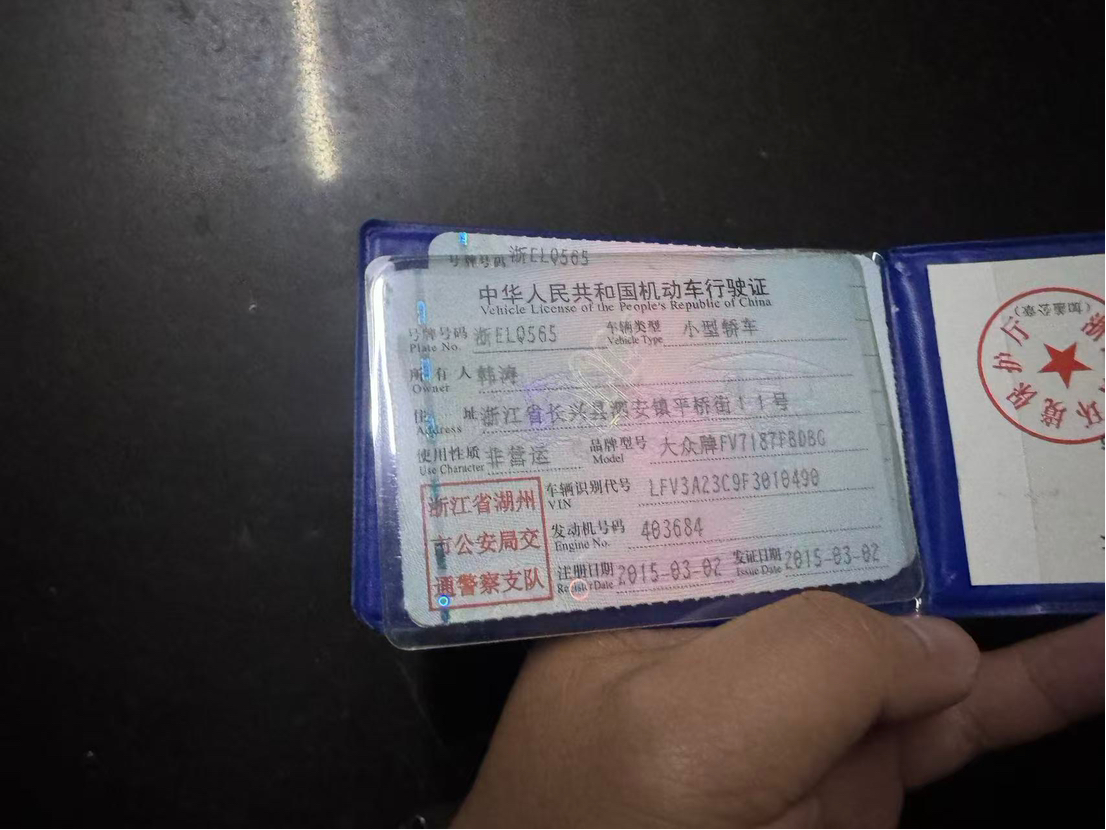 号牌号码 浙ELQ565
中华人民共和国机动车行驶证
Vehicle License of the People's Republic of China
号牌号码 浙ELQ565 车辆类型 小型轿车
Plate No. Vehicle Type
所有人 韩海
Owner
住址 浙江省长兴县泗安镇平桥街11号
Address
使用性质 非营运 品牌型号 大众牌FV7187FBDBG
Use Character Model
浙江省湖州
市公安局交
通警察支队
车辆识别代号 LFV3A23C9F3010490
VIN
发动机号码 403684
Engine No.
注册日期 2015-03-02 发证日期 2015-03-02
Register Date Issue Date
环境保护厅